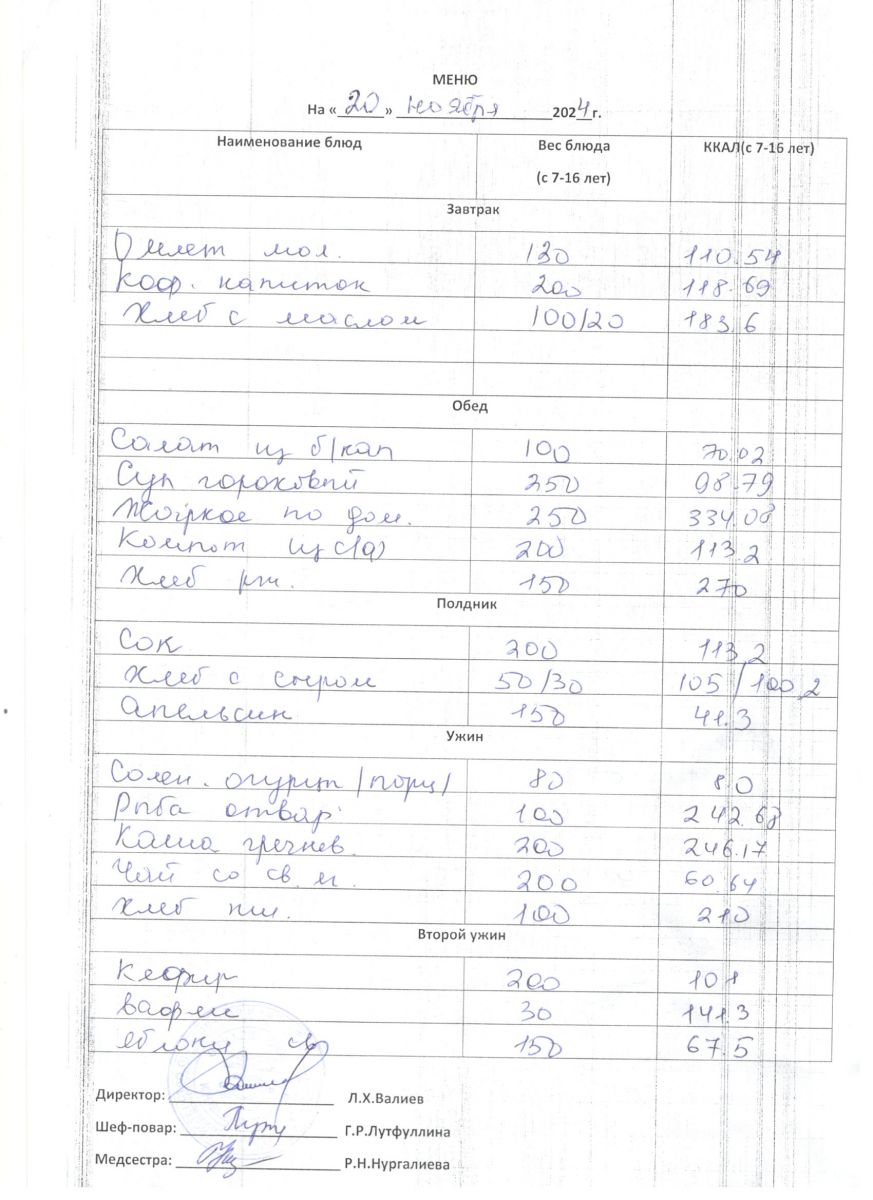 МЕНЮ
На «20» ноября 2024г.
Наименование блюд Вес блюда (с 7-16 лет) ККАЛ(с 7-16 лет)
Завтрак
Омлет мол. 130 110.54
Коф. напиток 200 118.69
Хлеб с маслом 100/20 183,6
Обед
Салат из б/кап 100 70.02
Суп гороховый 250 98.79
Жаркое по дом. 250 334.08
Компот из с/ф 200 113.2
Хлеб рж. 150 270
Полдник
Сок 200 113,2
Хлеб с сыром 50/30 105/100,2
Апельсин 150 41.3
Ужин
Солен. огурцы /порц/ 80 8.0
Рыба отвар 100 242.68
Каша гречнев. 200 246.17
Чай со св. м. 200 60.64
Хлеб пш. 100 210
Второй ужин
Кефир 200 101
Вафли 30 141.3
Яблоки св 150 67.5
Директор: Л.Х.Валиев
Шеф-повар: Г.Р.Лутфуллина
Медсестра: Р.Н.Нургалиева